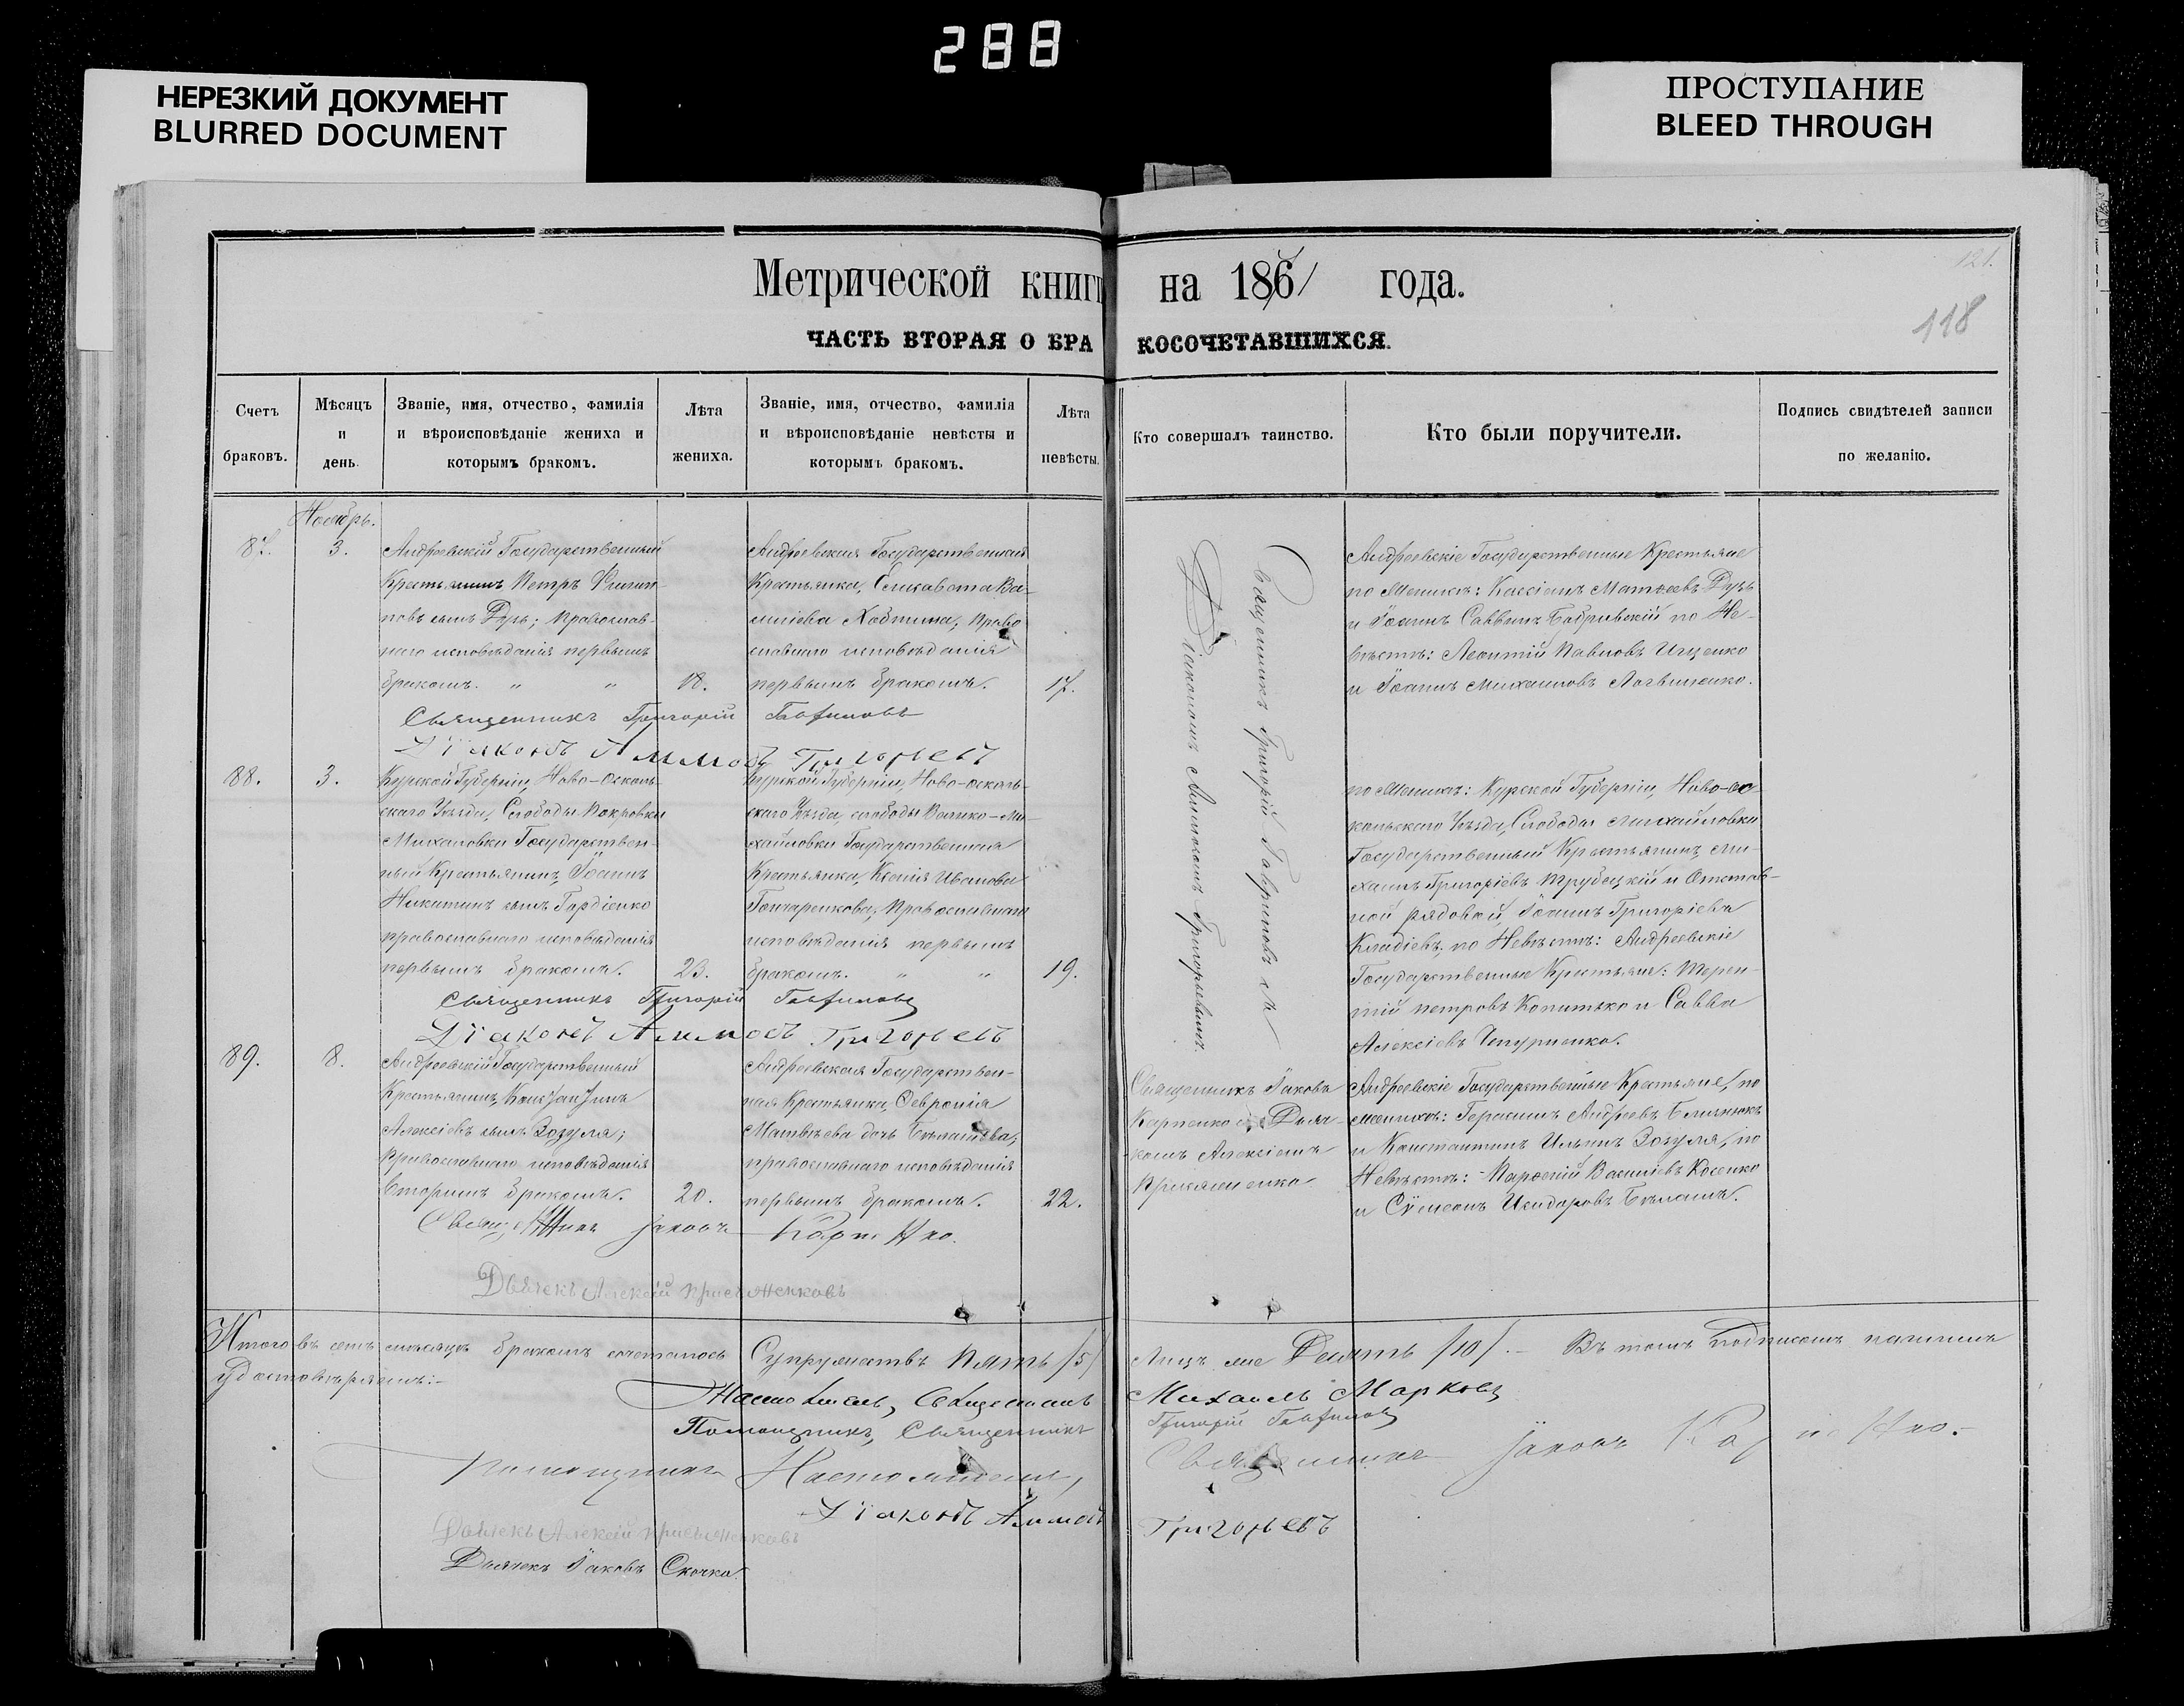 288
НЕРЕЗКИЙ ДОКУМЕНТ
BLURRED DOCUMENT
ПРОСТУПАНИЕ
BLEED THROUGH
121.
118
Метрической книг на 1861 года.
ЧАСТЬ ВТОРАЯ О БРА КОСОЧЕТАВШИХСЯ.
Счетъ
браковъ.
Мѣсяцъ
и
день.
Званіе, имя, отчество, фамилія
и вѣроисповѣданіе жениха и
которымъ бракомъ.
Лѣта
жениха.
Званіе, имя, отчество, фамилія
и вѣроисповѣданіе невѣсты и
которымъ бракомъ.
Лѣта
невѣсты.
Кто совершалъ таинство.
Кто были поручители.
Подпись свидѣтелей записи
по желанію.
Ноябрь.
87.
3.
Андреевскій Государственный
Крестьянинъ Петръ Филип-
повъ сынъ Дузь; православ-
наго исповѣданія первымъ
бракомъ. " "
18.
Андреевская Государственная
Крестьянка, Елисавета Ва-
силіева Хобтина; право
славнаго исповѣданія
первымъ бракомъ.
17.
Священникъ Григорій Гавриловъ
Діаконъ Алимпъ Григорьевъ
Священникъ Григорій Гавриловъ съ
Діакономъ Григорьевымъ
Андреевскіе Государственные Крестьяне
по Женихѣ: Кассіанъ Матѳеевъ Дузь
и Іоаннъ Саввинъ Бобривскій по Не-
вѣстѣ: Леонтій Павловъ Ищенко
и Іоаннъ Михаиловъ Логвиненко.
88.
3.
Курской Губерніи, Ново-Осколь-
скаго Уѣзда, Слободы Покровки
Михаиловки Государствен-
ный Крестьянинъ, Іоаннъ
Никитинъ сынъ Гордіенко
православнаго исповѣданія
первымъ бракомъ.
23.
Курской Губерніи, Ново-осколь-
скаго Уѣзда, слободы Велико-Ми-
хайловки Государственная
Крестьянка, Ксенія Иванова
Гончаренкова; Православнаго
исповѣданія первымъ
бракомъ. " "
19.
Священникъ Григорій Гавриловъ
Діаконъ Григорьевъ
по Женихѣ: Курской Губерніи, Ново-ос-
кольскаго Уѣзда, Слободы Михайловки
Государственный Крестьянинъ, Ми-
хаилъ Григоріевъ Трубецкій и Отстав-
ной рядовой, Іоаннъ Григоріевъ
Кладіевъ, по Невѣстѣ: Андреевскіе
Государственные Крестьяне: Терен-
тій петровъ Копитько и Савва
Алексіевъ Чепурненко.
89.
8.
Андреевскій Государственный
Крестьянинъ, Константинъ
Алексіевъ сынъ Зозуля;
Православнаго исповѣданія
Вторымъ бракомъ.
20.
Андреевская Государствен-
ная Крестьянка, Февронія
Матвѣева дочь Бѣлашева;
православнаго исповѣданія
первымъ бракомъ.
22.
Священникъ Іаковъ Карпенко.
Дьячекъ Алексій
Священникъ Іаковъ
Карпенко съ Дьяч-
комъ Алексіемъ
Андреевскіе Государственные Крестьяне, по
женихѣ: Герасимъ Андреевъ
и Константинъ Ильинъ Зозуля, по
Невѣстѣ: Василіевъ Косенко
и Сѵмеонъ Исидоровъ Бѣлашъ.
Итого въ семъ мѣсяцѣ бракомъ сочеталось Супружествъ Пять /5/ Лицъ же Десять /10/. - Въ томъ подписомъ нашимъ
Удостовѣряемъ:-
Настоятель, Священникъ Михаилъ Марковъ
Помощникъ, Священникъ Григорій Гавриловъ
Помощникъ Настоятеля, Священникъ Іаковъ Карпенко.-
Діаконъ Григорьевъ
Дьячекъ Алексій
Дьячекъ Іаковъ Скочко.